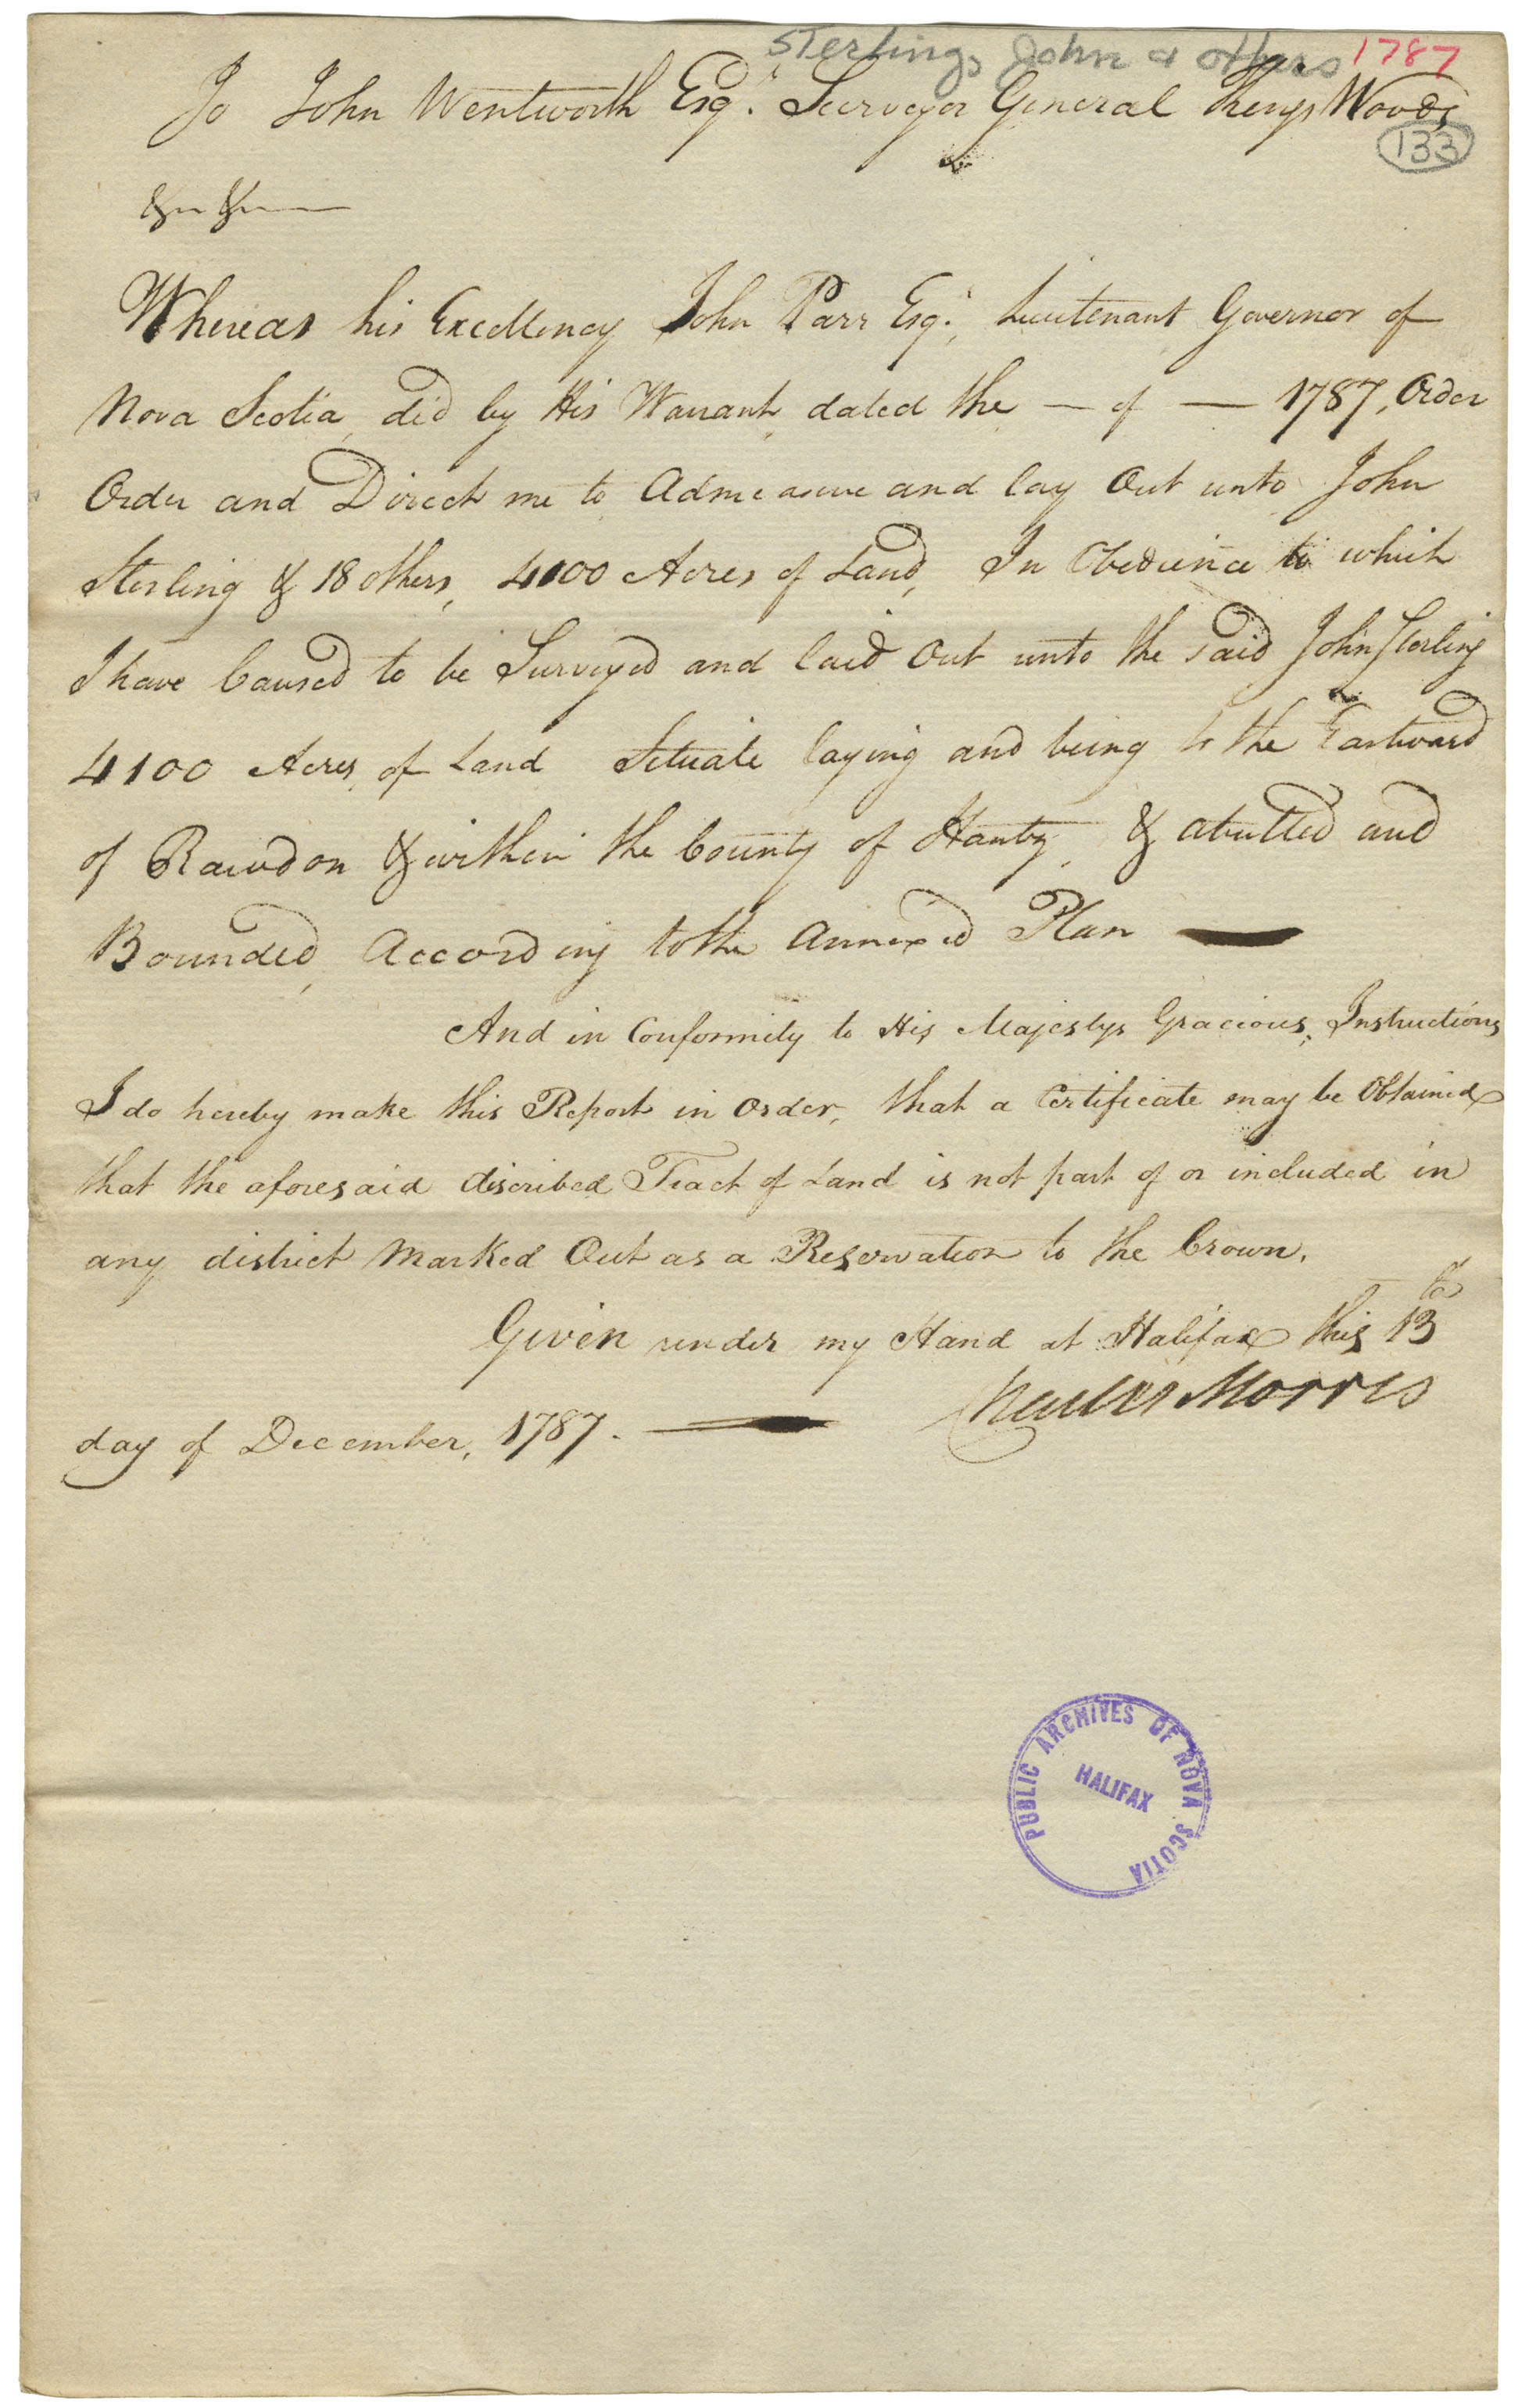 Sterling, John & others 1787
To John Wentworth Esqr. Surveyor General Kings Woods
133
&c &c
Whereas his Excellency John Parr Esqr. Lieutenant Governor of
Nova Scotia, did by His Warrant dated the — of — 1787, Order
Order and Direct me to Admeasure and lay Out unto John
Sterling & 18 others, 4100 Acres of Land, In Obedience to which
I have Caused to be Surveyed and laid Out unto the said John Sterling
4100 Acres of Land Situate laying and being to the Eastward
of Rawdon & within the County of Hants, & abutted and
Bounded, According to the Annexed Plan —
And in Conformity to His Majestys Gracious, Instructions
I do hereby make this Report in Order, that a Certificate may be Obtained
that the aforesaid discribed Tract of Land is not part of or included in
any district Marked Out as a Reservation to the Crown.
Given under my Hand at Halifax this 13th
day of December, 1787. — Charles Morris
PUBLIC ARCHIVES OF NOVA SCOTIA
HALIFAX